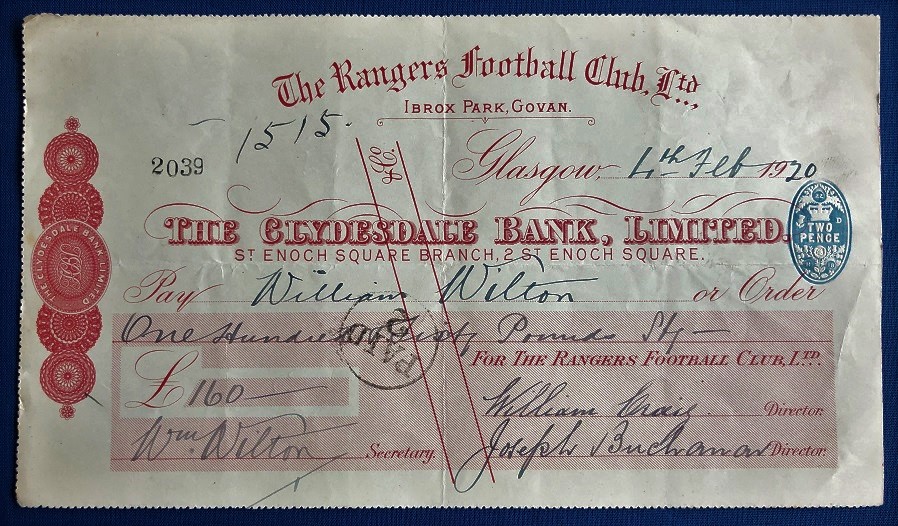 The Rangers Football Club, Ltd.,
IBROX PARK, GOVAN.
1515.
2039
& Co
Glasgow, 4th Feb 1920
THE CLYDESDALE BANK, LIMITED.
ST ENOCH SQUARE BRANCH, 2 ST ENOCH SQUARE.
TWO PENCE
THE CLYDESDALE BANK LIMITED
Pay William Wilton or Order
One Hundred Sixty Pounds Stg
PAID
FOR THE RANGERS FOOTBALL CLUB, LTD.
£160
William Craig Director.
Wm. Wilton Secretary.
Joseph Buchanan Director.